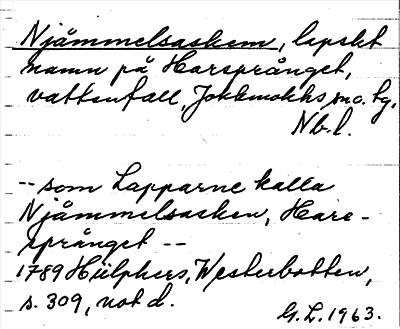 Njåmmelsaskem, lapskt
namn på Harsprånget,
vattenfall, Jokkmokks sn o. tg,
Nb. l.
-- som Lapparne kalla
Njåmmelsasken, Hare-
språnget --
1789 Hülphers, Westerbotten,
s. 309, not d.
G. L. 1963.